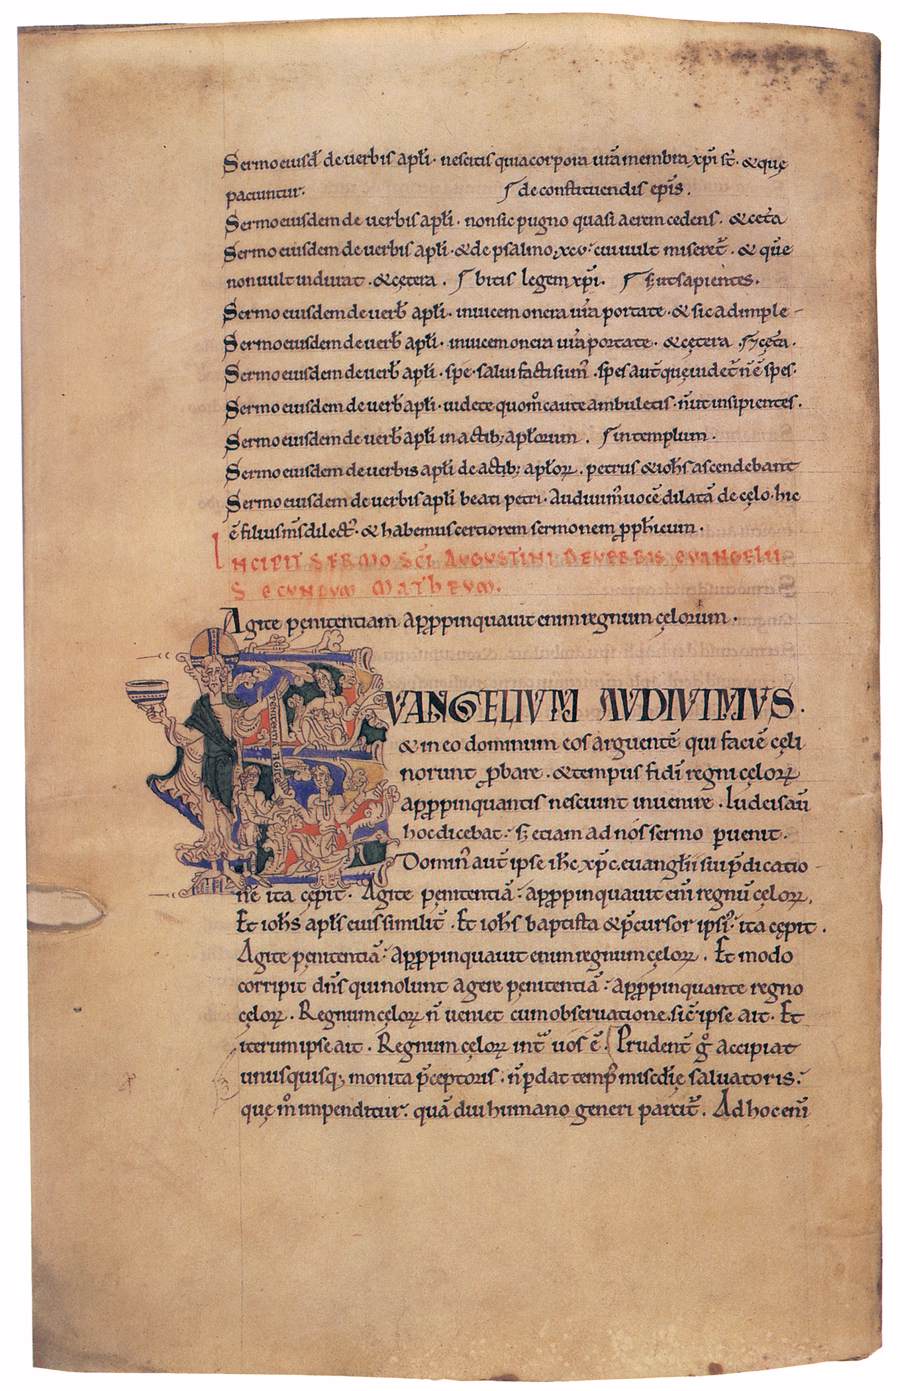 Sermo eiusd̄ de uerbis apl̄i · nescitis quia corpora ur̄a membra xp̄i st̄ · &que
paciuntur: ſ de constituendis ep̄is .
Sermo eiusdem de uerbis apl̄i · non sic pugno quasi aerem cedens · &cet̄a
Sermo eiusdem de uerbis apl̄i · & de psalmo xcv · cui uult miseret̄ · & que᷒
non uult indurat · &cetera . ſ bitis legem xp̄i . ſ s; ut sapientes .
Sermo eiusdem de uerb̄ apl̄i · inuicem onera ur̄a portate · & sic adimple -
Sermo eiusdem de uerb̄ apl̄i · inuicem onera ur̄a portate · &cętera . ſ
Sermo eiusdem de uerb̄ apl̄i · spe · salui facti sum᷒ · spes aut̄ quę uidet̄ n̄ ē spes ·
Sermo eiusdem de uerb̄ apl̄i · uidete quom̄ caute ambuletis · n̄ ut insipientes .
Sermo eiusdem de uerb̄ apl̄i in actib; apl̄orum . ſ in templum .
Sermo eiusdem de uerbis apl̄i de actib; apl̄oꝝ . petrus & ioh̄s ascendebant
Sermo eiusdem de uerbis apl̄i beati petri · Audiuim᷒ uocē dilatā de cęlo · hic
ē filius m̄s dilect᷒ · & habemus certiorem sermonem ꝓph̄icum .
INCIPIT SERMO SC̄I AUGUSTINI DE UERBIS EUANGELII
SECUNDUM MATHEUM .
Agite pęnitentiam apꝓpinquauit enim regnum cęlorum .
PENITENTIA AGITE
EUANGELIUM AUDIUIMUS .
& in eo dominum eos arguentē qui faciē cęli
norunt ꝓbare . & tempus fidī regni cęloꝝ
apꝓpinquantis nesciunt inuenire . Iudeis aū
hoc dicebat : s; etiam ad nos sermo ꝑuenit .
Domin᷒ aut̄ ipse ih̄c xp̄c euangl̄ii sui p̄dicatio -
nē ita cępit · Agite pęnitentiā : apꝓpinquauit eni᷒ regnū cęloꝝ .
Et ioh̄s apl̄s eius similit̄ . Et ioh̄s baptista & p̄cursor ipsi᷒ : ita cępit .
Agite pęnitentiā : apꝓpinquauit enim regnum cęloꝝ . Et modo
corripit dn̄s qui nolunt agere pęnitentiā : apꝓpinquante regno
cęloꝝ . Regnum cęloꝝ n̄ ueniet cum obseruatione . sic̄ ipse ait . Et
iterum ipse ait . Regnum cęloꝝ int̄ uos ē . Prudent̄ gͦ accipiat
unusquisq; monita p̄ceptoris . n̄ ꝑdat temp᷒ misc̄dię saluatoris :
quę m̊ impenditur : quādiu humano generi parcit̄ . Ad hoc eni᷒